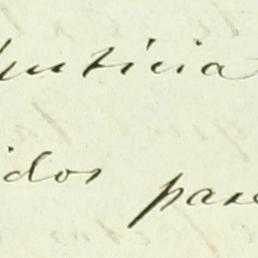 Justicia
idos para